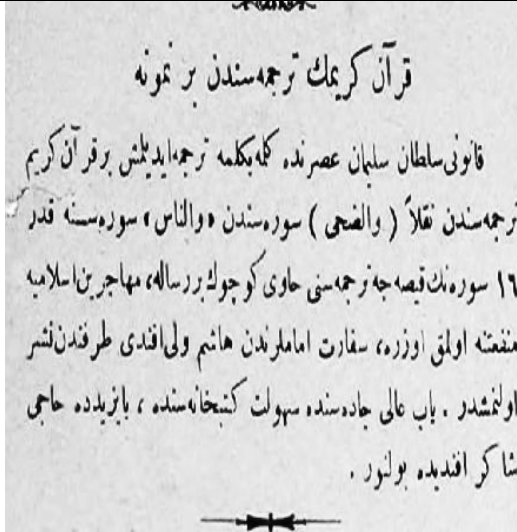 قرآن كريمك ترجمه‌سندن بر نمونه
قانونى سلطان سليمان عصرنده كلمه بكلمه ترجمه ايديلمش بر قرآن كريم
ترجمه‌سندن نقلاً ( والضحى ) سوره‌سندن «والناس» سوره‌سنه قدر
١٦ سوره‌نك قيصه‌جه ترجمه‌سنى حاوى كوچوك بر رساله، مهاجرين اسلاميه
منفعتنه اولمق اوزره، سفارت اماملرندن هاشم ولى افندى طرفندن نشر
اولنمشدر . باب عالى جاده‌سنده سهولت كتبخانه‌سنده ، بايزيدده حاجى
شاكر افنديده بولنور .